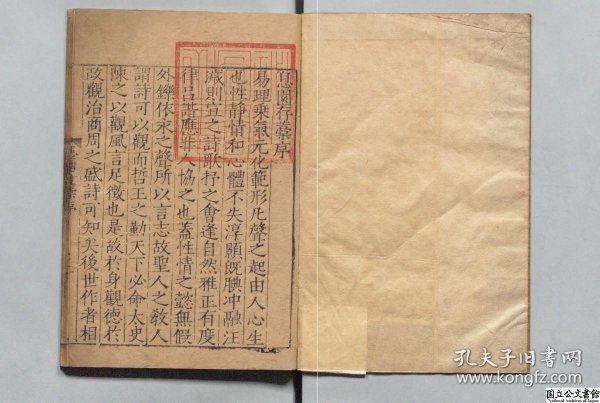 息園存藁序
易理乘氣元化範形凡聲之起由人心生
也性靜情和心體不失淳顥既腴冲融汪
濊則宣之詩歌抒之會逢自然雅正有度
律呂諧應非人協之也蓋性情之懿無假
外鑠依永之聲所以言志故聖人之敎人
謂詩可以觀而哲王之勤天下必命太史
陳之以觀風言足徵也是故於身觀德於
政觀治商周之盛詩可知矣後世作者相
孔夫子旧书网
www.kongfz.com
国立公文書館
National Archives of Japan